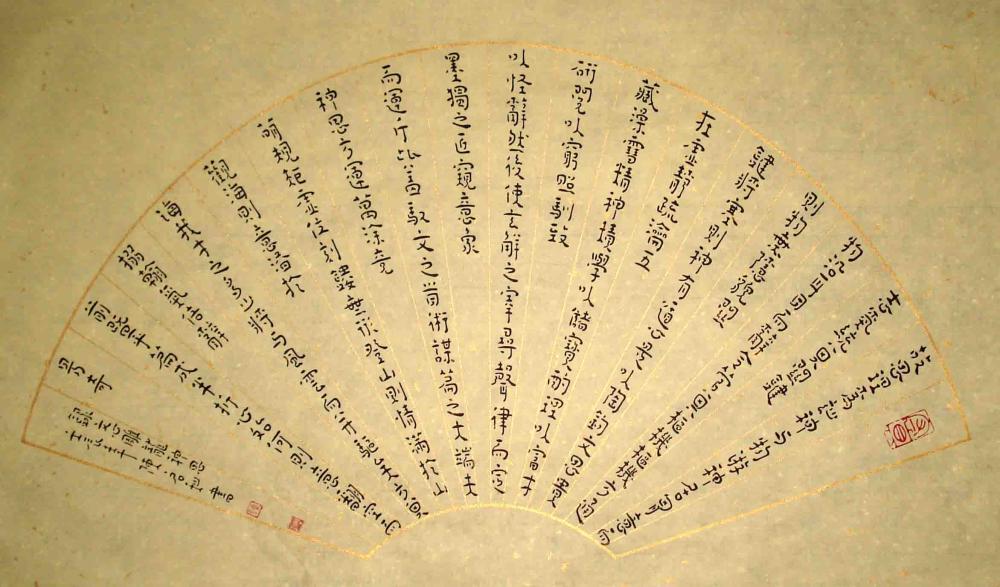 故思理為妙神与物游神居胸意而
志氣統其關鍵
物沿耳目而辭令管其樞機樞機方通
則物無隱貌關
鍵將塞則神有遁心是以陶鈞文思貴
在虛靜疏瀹五
藏澡雪精神積學以儲寶酌理以富才
研閱以窮照馴致
以怪辭然後使玄解之宰尋聲律而定
墨獨之匠窺意象
而運斤此蓋馭文之首術謀篇之大端夫
神思方運萬塗竞
萌規矩虛位刻鏤無形登山則情滿於山
觀海則意溢於
海我才之多少將与風雲而并驅矣方其
搦翰氣倍辭
前暨乎篇成半折心始何則意翻空而
易奇
錄文心雕龍神思
書